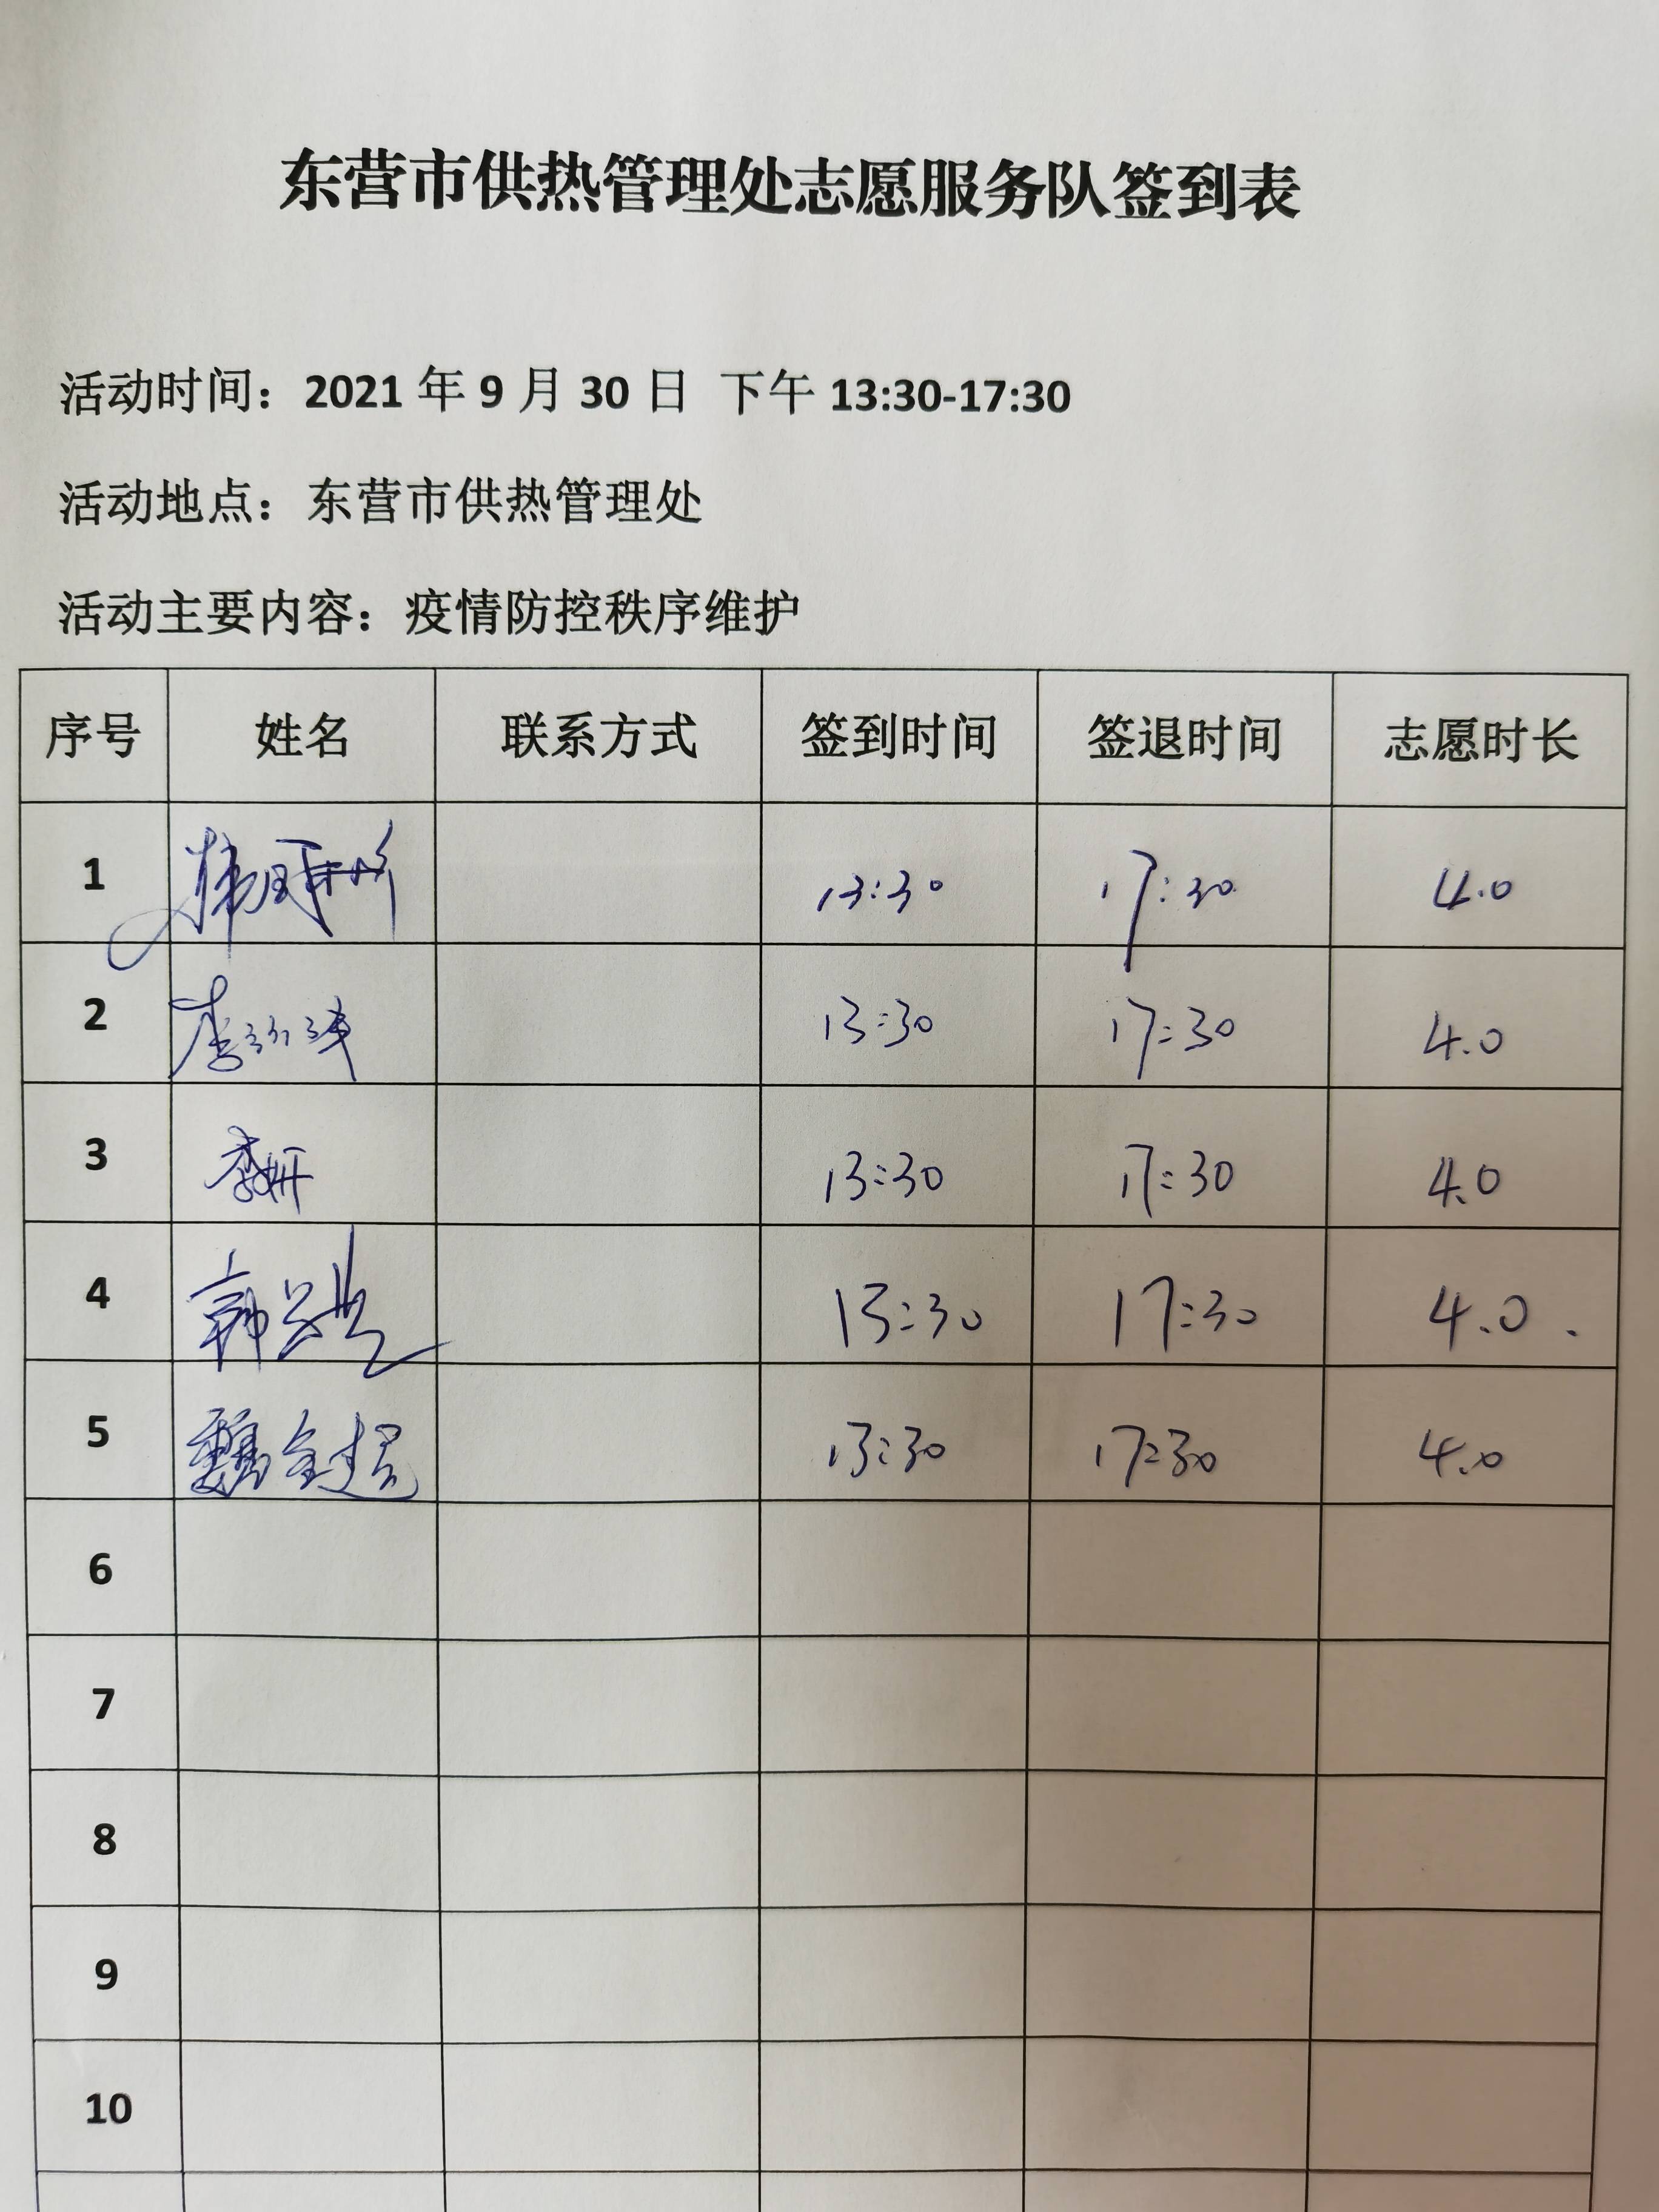 东营市供热管理处志愿服务队签到表
活动时间：2021 年 9 月 30 日 下午 13:30-17:30
活动地点：东营市供热管理处
活动主要内容：疫情防控秩序维护
序号 姓名 联系方式 签到时间 签退时间 志愿时长
1 13:30 17:30 4.0
2 13:30 17:30 4.0
3 李妍 13:30 17:30 4.0
4 13:30 17:30 4.0.
5 魏全超 13:30 17:30 4.0
6
7
8
9
10